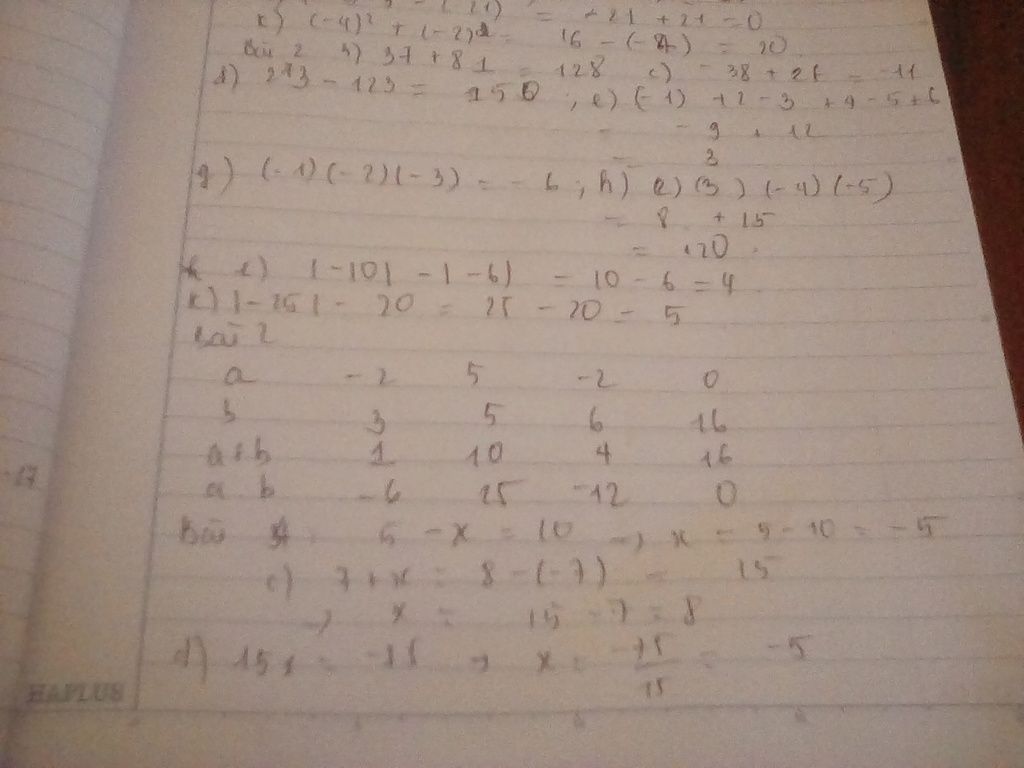 (-21) = -21 + 21 = 0
k) (-4)² + (-2) = 16 - (-4) = 20
Bài 2 b) 37 + 81 = 128 c) -38 + 27 = -11
d) 273 - 123 = 150 ; e) (-1) + 2 - 3 + 4 - 5 + 6
= -9 + 12
= 3
g) (-1)(-2)(-3) = -6 ; h) 2)(3)(-4)(-5)
= 8 + 15
= 120
i) |-10| - |-6| = 10 - 6 = 4
k) |-25| - 20 = 25 - 20 = 5
Bài 2
a -2 5 -2 0
b 3 5 6 16
a+b 1 10 4 16
a b -6 25 -12 0
Bài 5 - x = 10 → x = 5 - 10 = -5
c) 7 + x = 8 - (-7) = 15
→ x = 15 - 7 = 8
d) 15x = → x = = -5
HAPLUS
-17